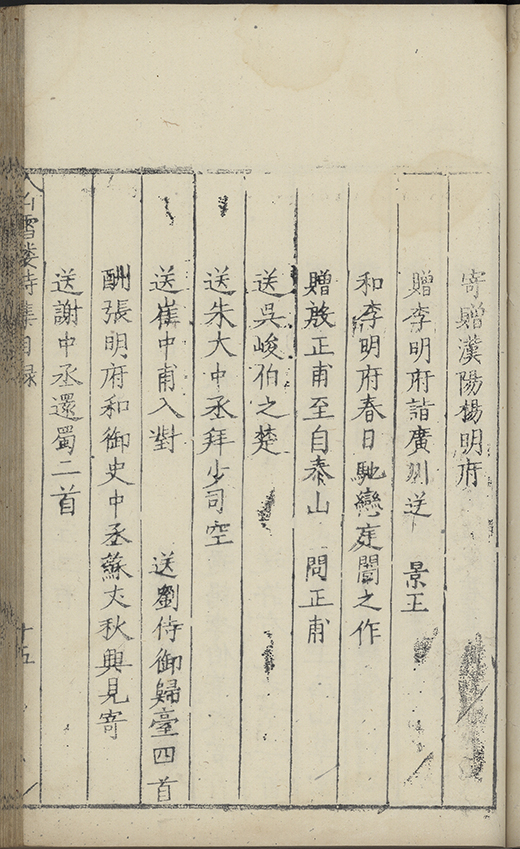 寄贈漢陽楊明府
贈李明府詣廣州送 景王
和李明府春日馳戀庭闈之作
贈殷正甫至自泰山 問正甫
送吳峻伯之楚
送朱大中丞拜少司空
送崔中甫入對 送劉侍御歸臺四首
酬張明府和御史中丞蘇丈秋興見寄
送謝中丞還蜀二首
白雪樓詩集目録 十五